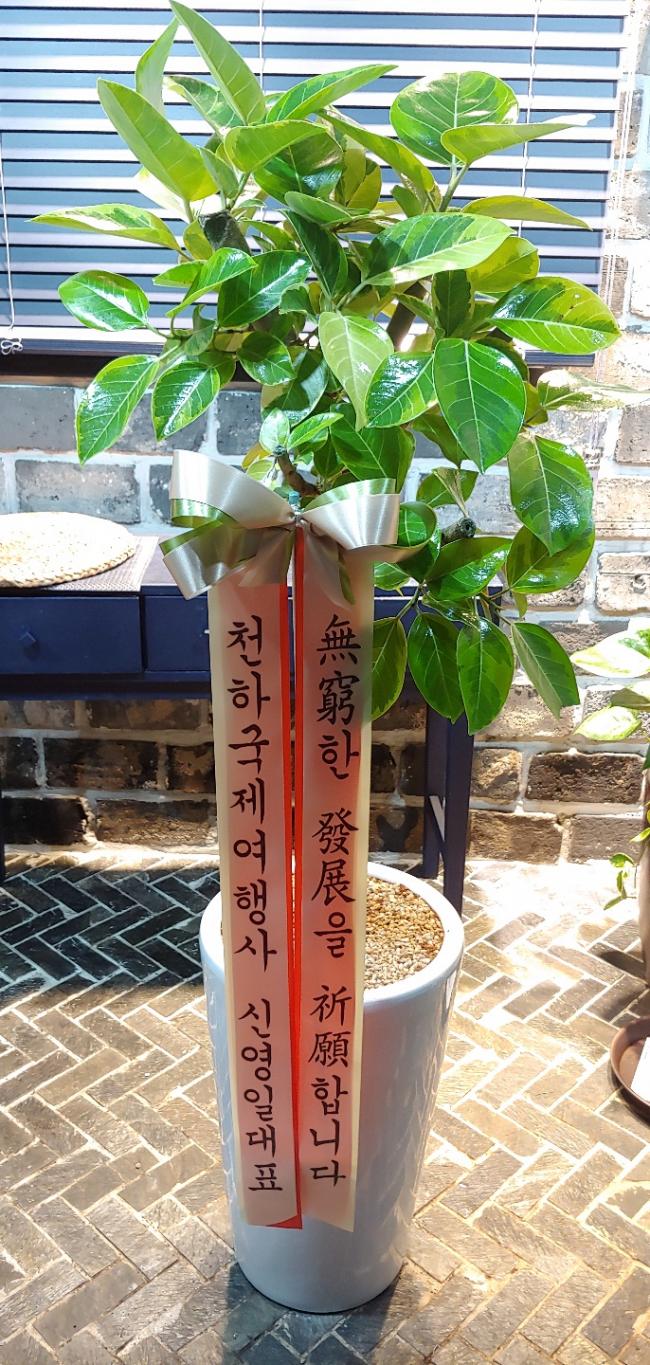 無窮한 發展을 祈願합니다
천하국제여행사 신영일대표